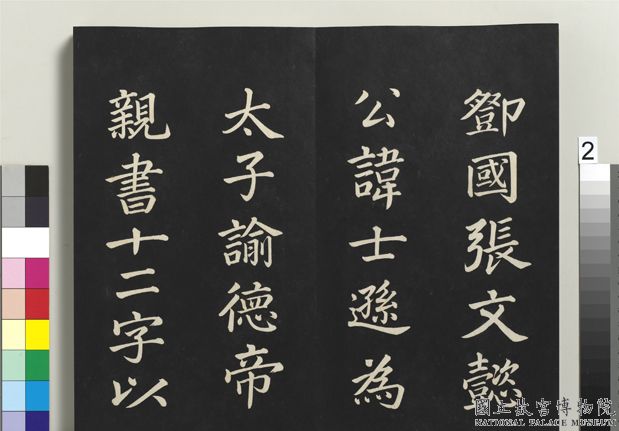 鄧國張文懿
公諱士遜為
太子諭德帝
親書十二字以
2
國立故宮博物院
NATIONAL PALACE MUSEUM